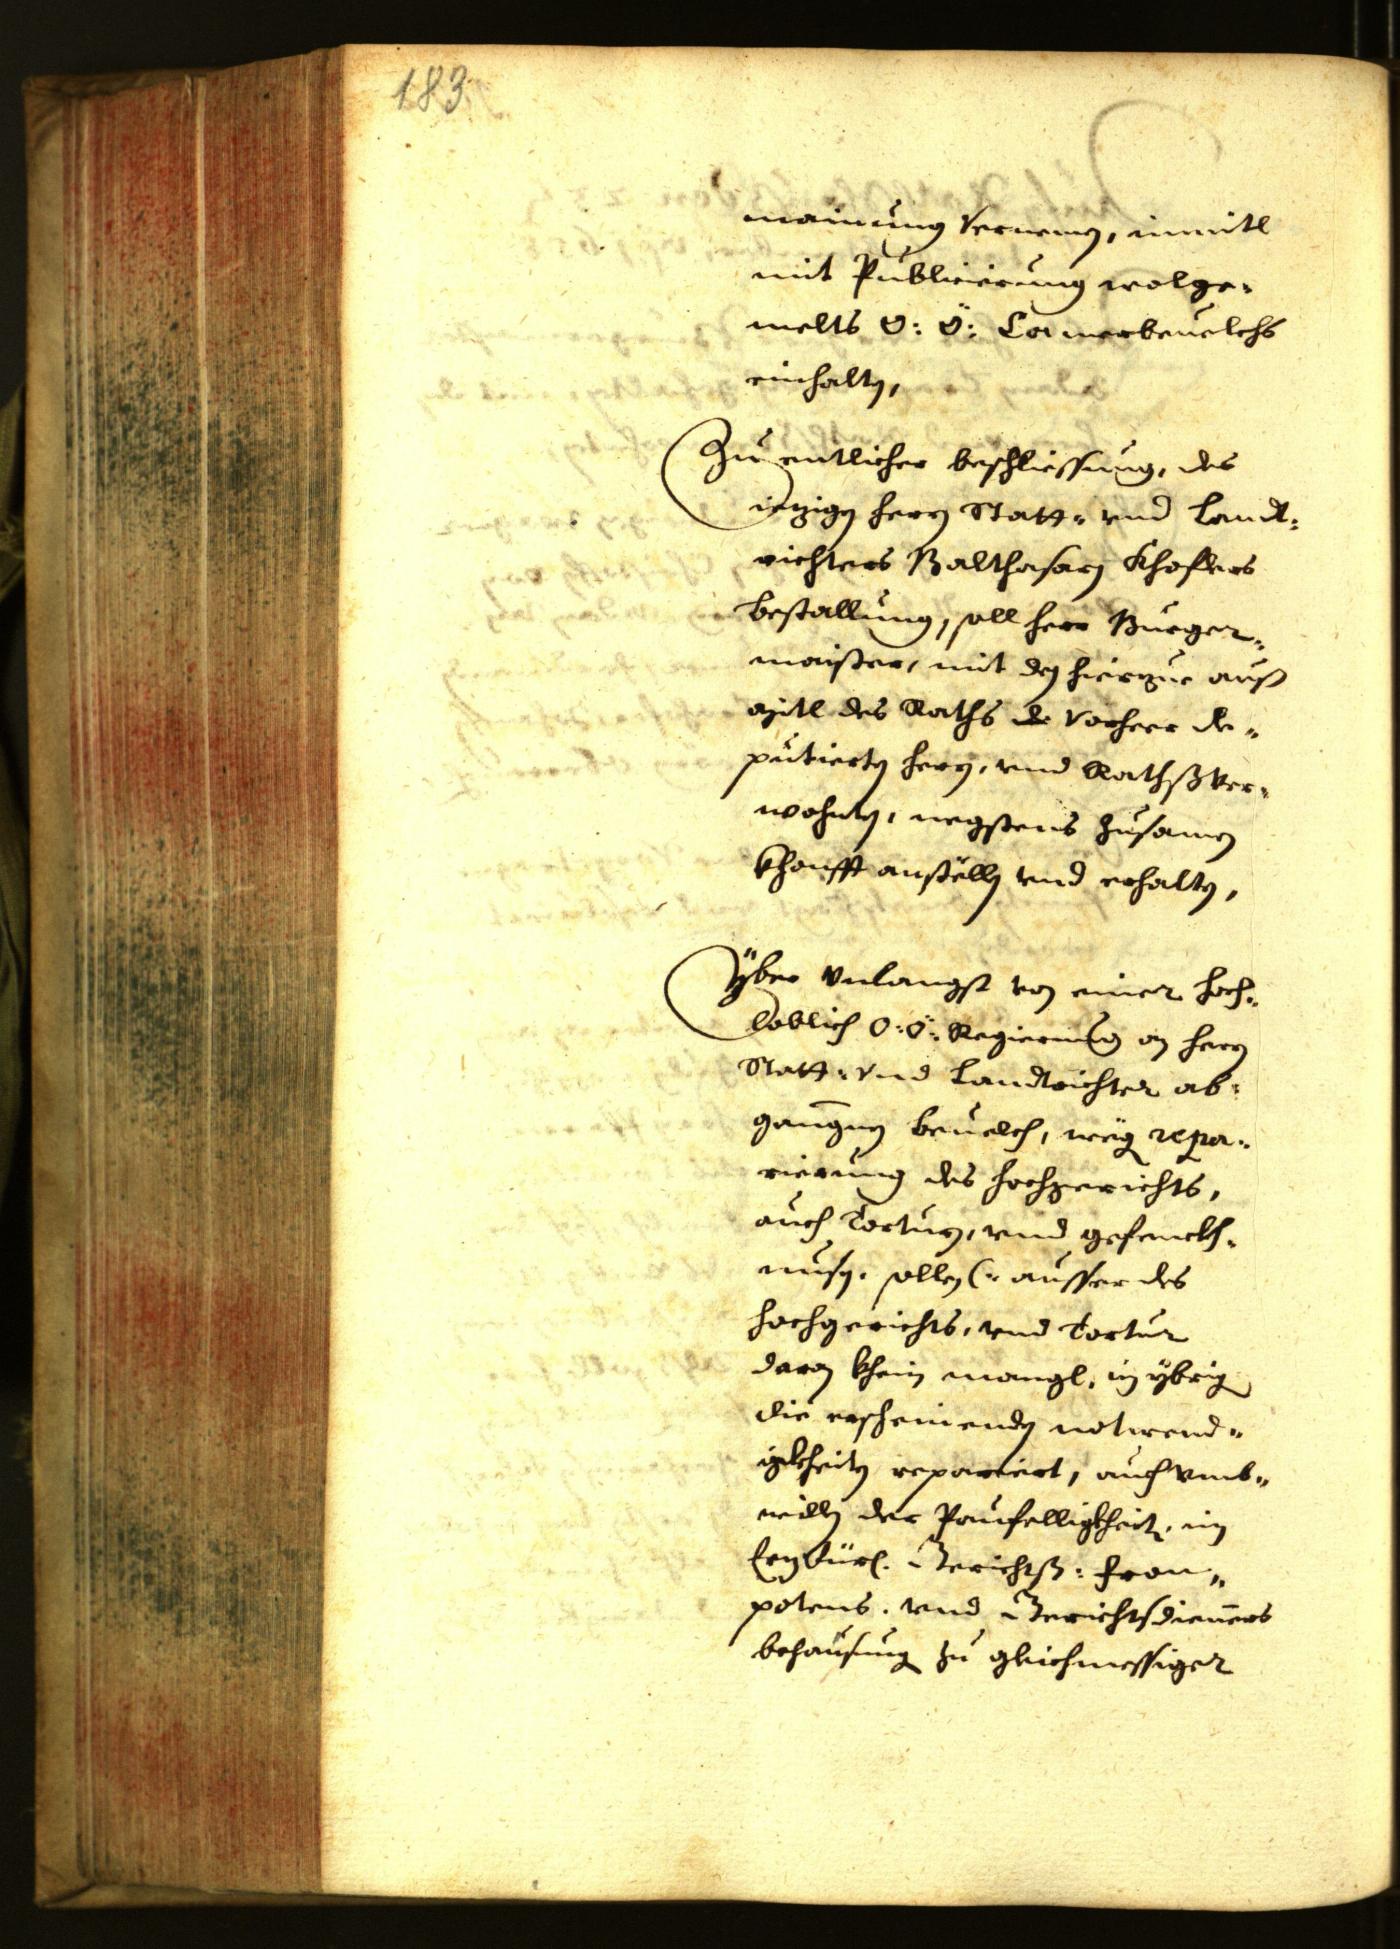 183
mainung vernemen, inmitl
mit Publicierung wolge-
melts O: Ö: Camerbeuelchs
einhalten,
Zu entlicher beschliessung, des
iezigen herrn Statt- vnd Landt-
richters Balthasarn Khoflers
bestallung, soll herr Burger-
maister, mit den hierzue auß
mitl des Raths vorheer de-
putierten herrn, vnd Rathßver-
wohnten, negstens zusamen
khonfft anstellen vnd erhalten,
Yber vnlangst von einer hoch-
loblich O: Ö: Regierung an herrn
Statt- vnd Landtrichter ab-
gangnen beuelch, weg repa-
rierung des hochgerichts,
auch Tortur, vnd gefenckh-
nusen, sollen (: ausser des
hochgerichts, vnd Tortur
daran khein mangl, in ybrig
die erscheinenden notwend-
igkheiten repariert, auch vmb-
willen der Paufelligkheit, in
Gerichtß: Fron-
potens, vnd Gerichtsdieners
behausung zu gleichmessiger